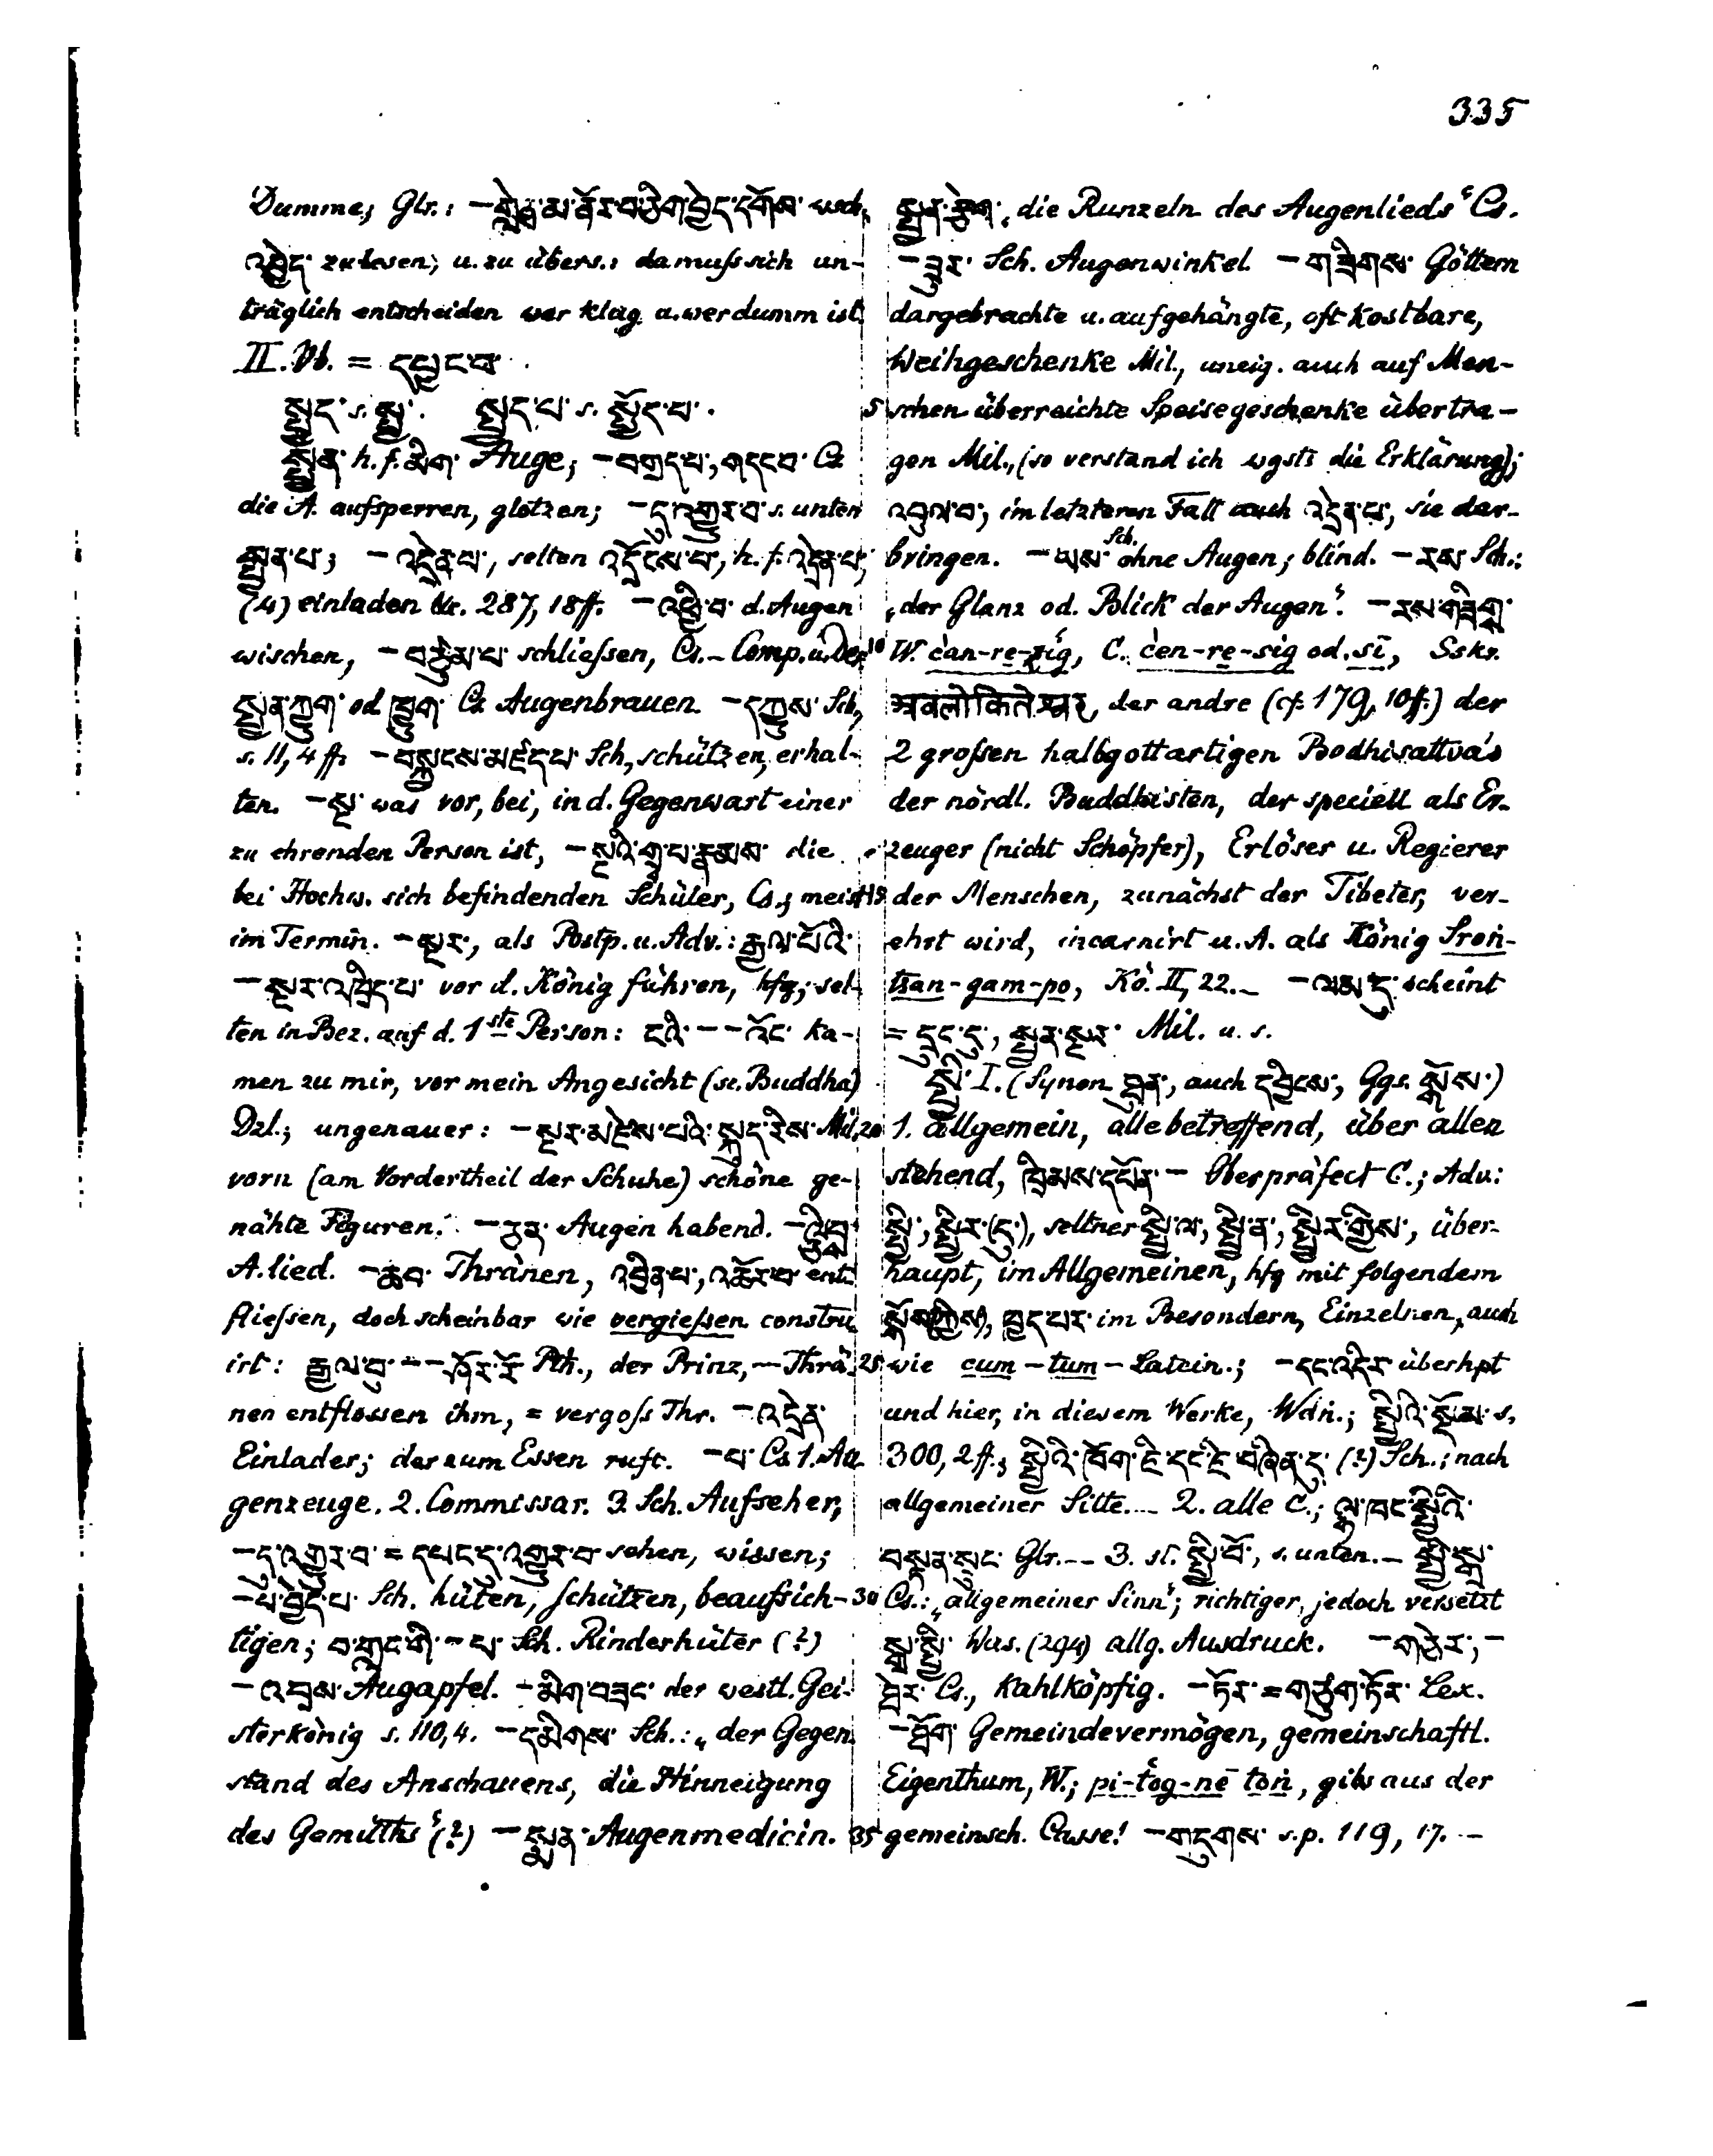 335
Dumme; Glr.: – མ་ནོར་བ་ཅིག་བྱེད་དགོས་
འབྱེད་ zu lesen; u. zu übers.: da muſs sich un-
träglich entscheiden wer klug u. wer dumm ist.
II. Vb. = དཔྱང་བ་
སྤྱད་ s. སྤྱ་. སྤྱད་པ་ s. སྤྱོད་པ་.
སྤྱན་ h. f. མིག་ Auge; –བགྲད་པ་, གདང་བ་ Cs
die A. aufsperren, glotzen; –དུ་འགྱུར་བ་ s. unten
སྤྱན་པ་; –འདྲེན་པ་, selten འདྲོངས་པ་, h. f. འདྲེན་པ་;
(4) einladen Nr. 287, 18 ff. –འཕྱི་བ་ d. Augen
wischen, –བཙུམ་པ་ schlieſsen, Cs. – Comp. u. Der.
སྤྱན་ཀྱུག་ od. ཁྱུག་ Cs Augenbrauen. –དཀྱུས་ Sch,
s. 11, 4 ff. –བསྐྱངས་མཛད་པ་ Sch, schützen, erhal-
ten. –སྔ་ was vor, bei, in d. Gegenwart einer
zu ehrenden Person ist, –སྔའི་གྲྭ་པ་རྣམས་ die
bei Hochw. sich befindenden Schüler, Cs.; meist
im Termin. –སྔར་, als Postp. u. Adv.: རྒྱལ་པོའི་
–སྔར་འཁྲིད་པ་ vor d. König führen, hfg; sel-
ten in Bez. auf d. 1ste Person: ངའི་ – – འོང་ ka-
men zu mir, vor mein Angesicht (sc. Buddha)
Dzl.; ungenauer: –སྔར་མཛེས་པའི་སྐུད་རིས་ Mil,
vorn (am Vordertheil der Schuhe) schöne ge-
nähte Figuren. –ཅན་ Augen habend.
A. lied. –ཆབ་ Thränen, འབྱིན་པ་, འཆོར་བ་ ent-
flieſsen, doch scheinbar wie vergieſsen constru-
irt: རྒྱལ་བུ་ – –ཤོར་རོ་ Pth., der Prinz, – Thrä-
nen entflossen ihm, = vergoſs Thr. –འདྲེན་
Einlader; der zum Essen ruft. –པ་ Cs 1. Au-
genzeuge. 2. Commissar. 3. Sch. Aufseher,
–དུ་འགྱུར་བ་ = དཔང་དུ་འགྱུར་བ་ sehen, wissen;
–པ་བྱེད་པ་ Sch. hüten, schützen, beaufsich-
tigen; བ་གླང་གི་ – པ་ Sch. Rinderhüter (?)
–འབྲས་ Augapfel. –མིག་བཟང་ der westl. Gei-
sterkönig s. 110, 4. –དམིགས་ Sch.: „der Gegen-
stand des Anschauens, die Hinneigung
des Gemüths“ (?) –སྨན་ Augenmedicin.
སྤྱན་ „die Runzeln des Augenlieds“ Cs.
–ཟུར་ Sch. Augenwinkel. –གཟིགས་ Göttern
dargebrachte u. aufgehängte, oft kostbare,
Weihgeschenke Mil., uneig. auch auf Men-
5 schen überreichte Speisegeschenke übertra-
gen Mil., (so verstand ich wgsts die Erklärung);
འབུལ་བ་, im letzteren Fall auch འདྲེན་པ་, sie dar-
bringen. –ཡས་ Sch. ohne Augen; blind. –རས་ Sch.:
„der Glanz od. Blick der Augen“. –རས་གཟིགས་
10 W. c̀an-re-zig, C. c̀en-re-sig od. sī, Sskr.
अवलोकितेश्वर, der andre (cf. 179, 10 ff.) der
2 groſsen halbgottartigen Bodhisattva's
der nördl. Buddhisten, der speciell als Er-
zeuger (nicht Schöpfer), Erlöser u. Regierer
15 der Menschen, zunächst der Tibeter, ver-
ehrt wird, incarnirt u. A. als König Sroṅ-
tsan-gam-po, Kö. II, 22. – –ལམ་དུ་ scheint
= དྲུང་དུ་, སྤྱན་སྔར་ Mil. u. s.
སྤྱི་ I. (Synon ཐུན་, auch དབྱིངས་, Ggs. སྒོས་)
20 1. allgemein, alle betreffend, über allen
stehend, ཁྲིམས་དཔོན་ – Oberpräfect C.; Adv:
སྤྱི་, སྤྱིར་(དུ་), seltner སྤྱི་ལ་, སྤྱི་ན་, སྤྱིར་གྱིས་, über-
haupt, im Allgemeinen, hfg mit folgendem
སྒོས(ཀྱིས), ཁྱད་པར་ im Besondern, Einzelnen, auch
25 wie cum – tum – Latein.; –དང་འདིར་ überhpt
und hier, in diesem Werke, Wdn.; སྤྱིའི་སྡོམ་ s.
300, 2 ff.; (?) Sch.; nach
allgemeiner Sitte. – 2. alle C.; ལྷ་ཁང་སྤྱིའི་
བསྟན་སྲུང་ Glr. – 3. st. སྤྱི་བོ་, s. unten. – སྤྱི་སྒྲ་
30 Cs.: „allgemeiner Sinn“; richtiger, jedoch versetzt
སྒྲ་སྤྱི་ Was. (294) allg. Ausdruck. –གཅེར་, –
ཐེར་ Cs., kahlköpfig. –ཏོར་ = གཙུག་ཏོར་ Lex.
–ཐོག་ Gemeindevermögen, gemeinschaftl.
Eigenthum, W.; pi-t̀og-nē toṅ, gibs aus der
35 gemeinsch. Casse! –གདུགས་ s. p. 119, 17. –